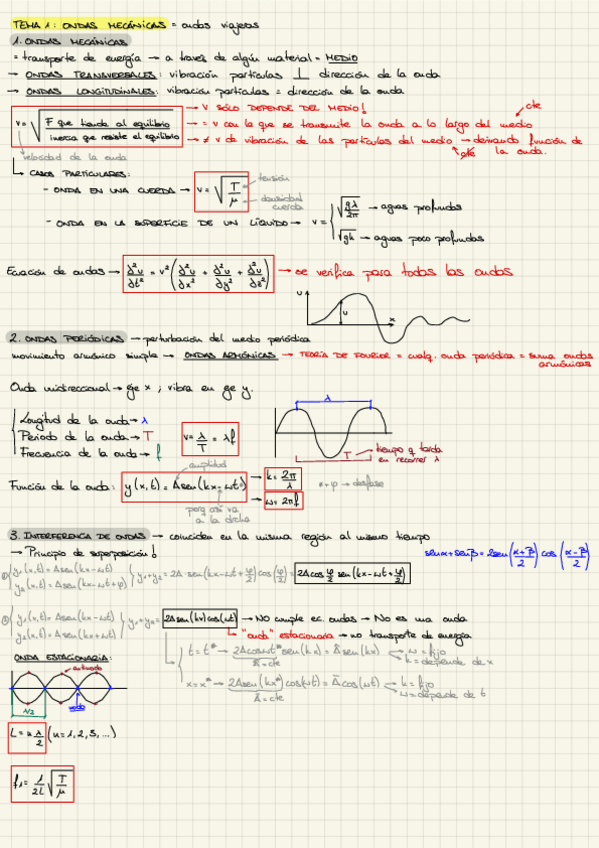 TEMA 1: ONDAS MECÁNICAS = ondas viajeras
1. ONDAS MECÁNICAS
= transporte de energía → a través de algún material = MEDIO
→ ONDAS TRANSVERSALES: vibración partículas ⊥ dirección de la onda
→ ONDAS LONGITUDINALES: vibración partículas = dirección de la onda
v = √(F que tiende al equilibrio / inercia que resiste el equilibrio)
→ v SÓLO DEPENDE DEL MEDIO!
cte
→ = v con la que se transmite la onda a lo largo del medio
→ ≠ v de vibración de las partículas del medio → derivando función de la onda.
velocidad de la onda
CASOS PARTICULARES:
- ONDA EN UNA CUERDA → v = √(T/μ)
tensión
densidad cuerda
- ONDA EN LA SUPERFICIE DE UN LÍQUIDO → v =
√(gλ/2π) → aguas profundas
√(gh) → aguas poco profundas
Ecuación de ondas → ∂²u/∂t² = v² (∂²u/∂x² + ∂²u/∂y² + ∂²u/∂z²) → se verifica para todas las ondas
U
u
x
2. ONDAS PERIÓDICAS → perturbación del medio periódica
movimiento armónico simple → ONDAS ARMÓNICAS → TEORÍA DE FOURIER = cualq. onda periódica = suma ondas armónicas
Onda unidireccional → eje x ; vibra en eje y.
λ
Longitud de la onda → λ
Periodo de la onda → T
Frecuencia de la onda → f
v = λ/T = λf
T → tiempo q tarda en recorrer λ
amplitud
Función de la onda: y(x,t) = A sen(kx - ωt)
→ k = 2π/λ
→ ω = 2πf
porq así va a la dcha
+φ → desfase
3. INTERFERENCIA DE ONDAS → coinciden en la misma región al mismo tiempo
→ Principio de superposición!
senα + senβ = 2sen((α+β)/2) cos((α-β)/2)
① y₁(x,t) = A sen(kx - ωt)
y₂(x,t) = A sen(kx - ωt + φ)
y₁ + y₂ = 2A · sen(kx - ωt + φ/2) cos(φ/2) = 2A cos φ/2 sen(kx - ωt + φ/2)
② y₁(x,t) = A sen(kx - ωt)
y₂(x,t) = A sen(kx + ωt)
y₁ + y₂ = 2A sen(kx) cos(ωt) → NO cumple ec. ondas → No es una onda
→ "onda" estacionaria → no transporte de energía
ONDA ESTACIONARIA:
antinodo
nodo
λ/2
t = t* → 2A cosωt* sen(kx) = Ã sen(kx)
Ã = cte
ω = fijo
k = depende de x
x = x* → 2A sen(kx*) cos(ωt) = Ã cos(ωt)
Ã = cte
k = fijo
ω = depende de t
L = n λ/2 (n = 1, 2, 3, ...)
f₁ = 1/2L √(T/μ)